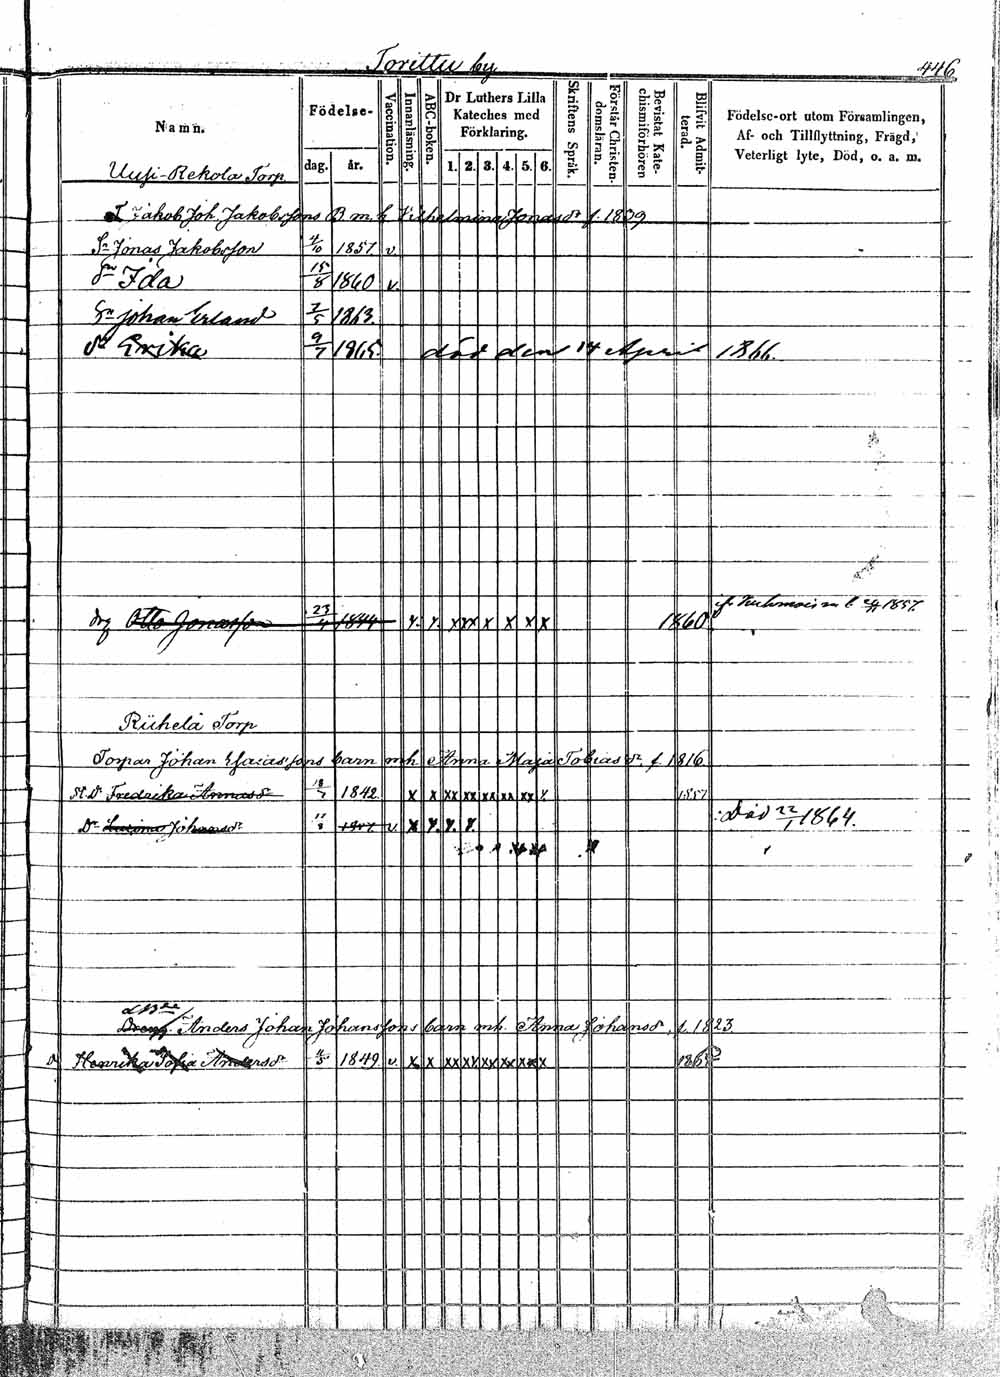 Torittu by 446
Namn.
Födelse-
dag.
år.
Vaccination.
Innanläsning.
ABC-boken.
Dr Luthers Lilla
Kateches med
Förklaring.
1. 2. 3. 4. 5. 6.
Skriftens Språk.
Förstår Christen-
domsläran.
Bevistat Kate-
chismiförhören
Blifvit Admit-
terad.
Födelse-ort utom Församlingen,
Af- och Tillflyttning, Frägd,
Veterligt lyte, Död, o. a. m.
Uusi-Rekola Torp
T Jakob Joh. Jakobssons B m. h. Vilhelmina Jonasdr f. 1809
Sn Jonas Jakobsson 4/10 1857. v.
Ida 15/8 1860 v.
Sn Johan Erland 7/5 1863.
Dr Erika 9/7 1965. död den 14 April 1866.
drg Otto Jonasson 23/4 1844 x. x. x xx x x x x 1860 1857.
Riihelä Torp
Torpar Johan Esaiassons barn mh Anna Maja Tobiasdr. f 1816
Dr Fredrika Annasdr 18/7 1842 x x xx xx xx xx xx x 1857
Dr Johansdr v. x x. x. x. Död 22/1 1864.
Anders Johan Johanssons barn mh. Anna Johansdr f. 1823
Henrika Sofia Andersdr 1849 v. x x xx xx xx xx xx x